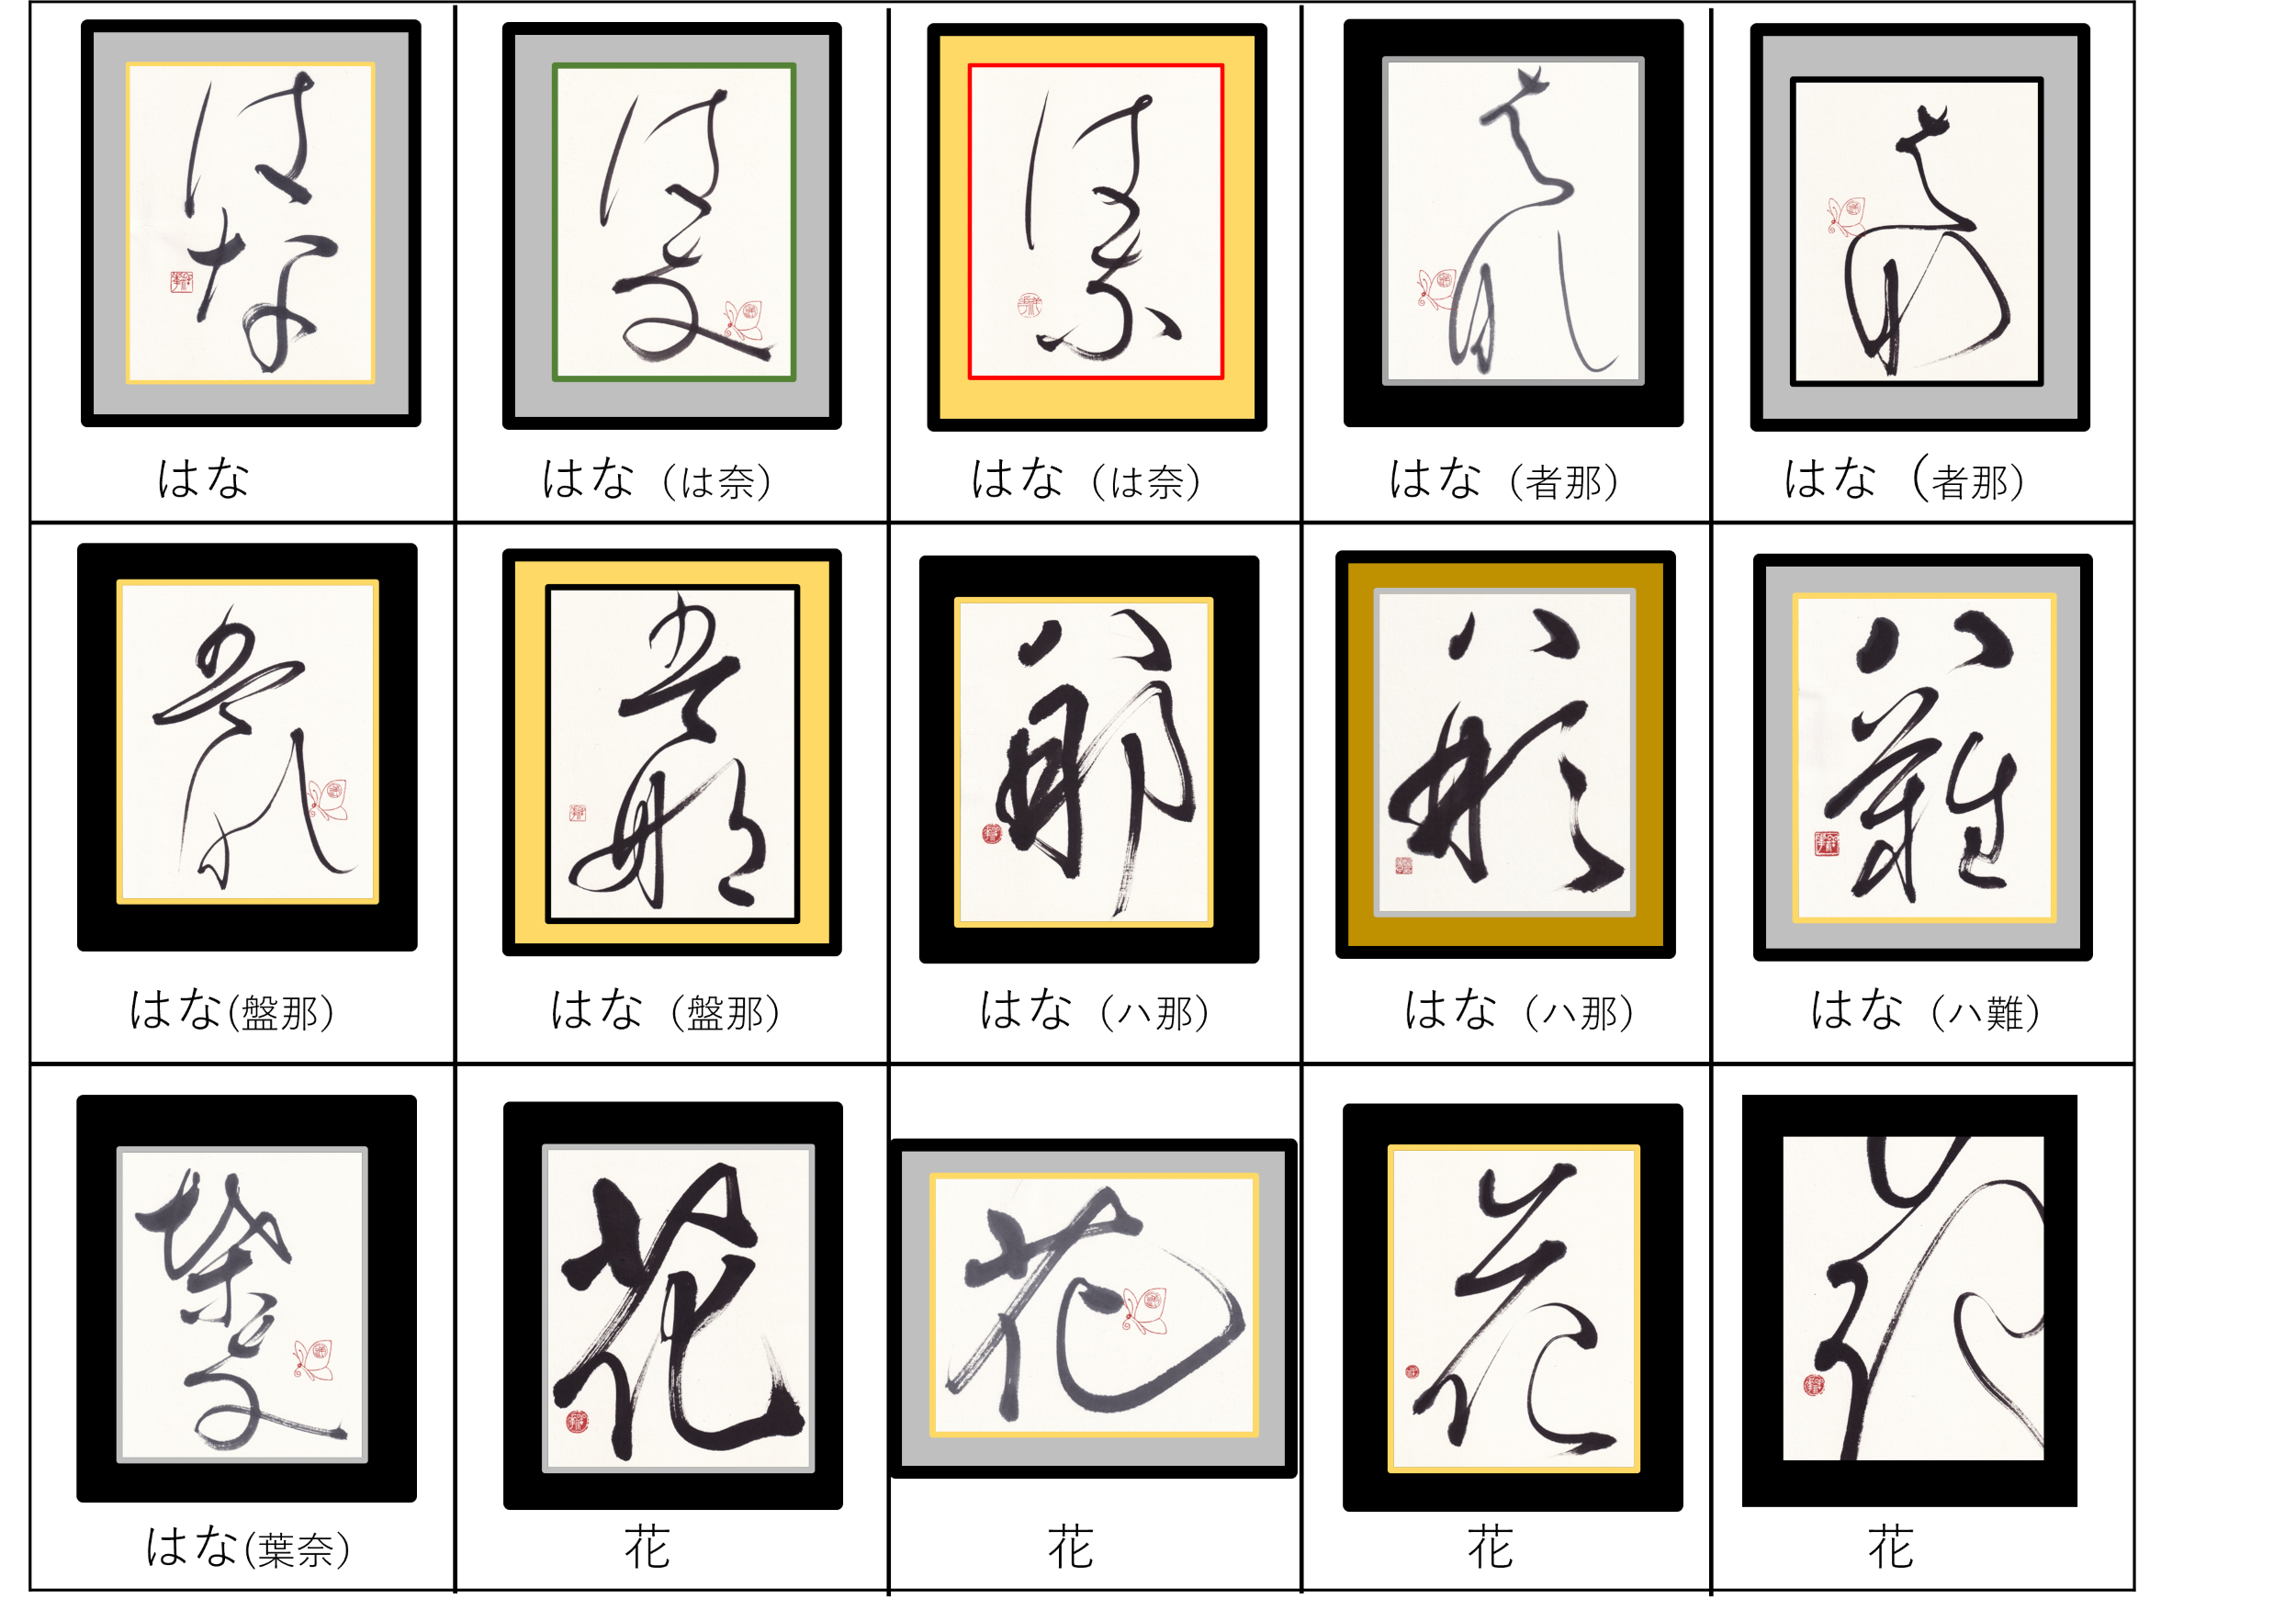 はな
はな（は奈）
はな（は奈）
はな（者那）
はな（者那）
はな(盤那)
はな（盤那）
はな（ハ那）
はな（ハ那）
はな（ハ難）
はな(葉奈)
花
花
花
花